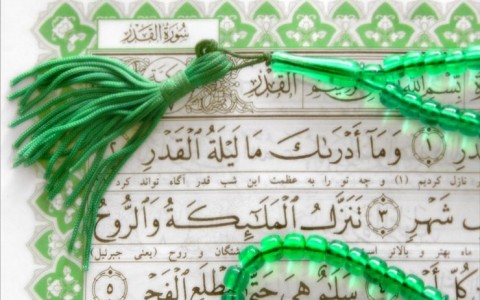 سُورَةُ الْقَدْر
بِسْمِ اللّٰهِ
الْقَدْرِ
﴿١﴾ وَمَآ أَدْرَىٰكَ مَا لَيْلَةُ الْقَدْرِ ﴿٢﴾
نازل کردیم (۱) و چه تو را به عظمت این شب قدر آگاه تواند کرد
شَهْرٍ ﴿٣﴾ تَنَزَّلُ الْمَلَٰٓئِكَةُ وَالرُّوحُ
ماه بهتر و بالاتر و روح (یعنی جبرئیل)
كُلِّ سَلَٰمٌ هِيَ حَتَّىٰ مَطْلَعِ الْفَجْرِ ﴿٥﴾